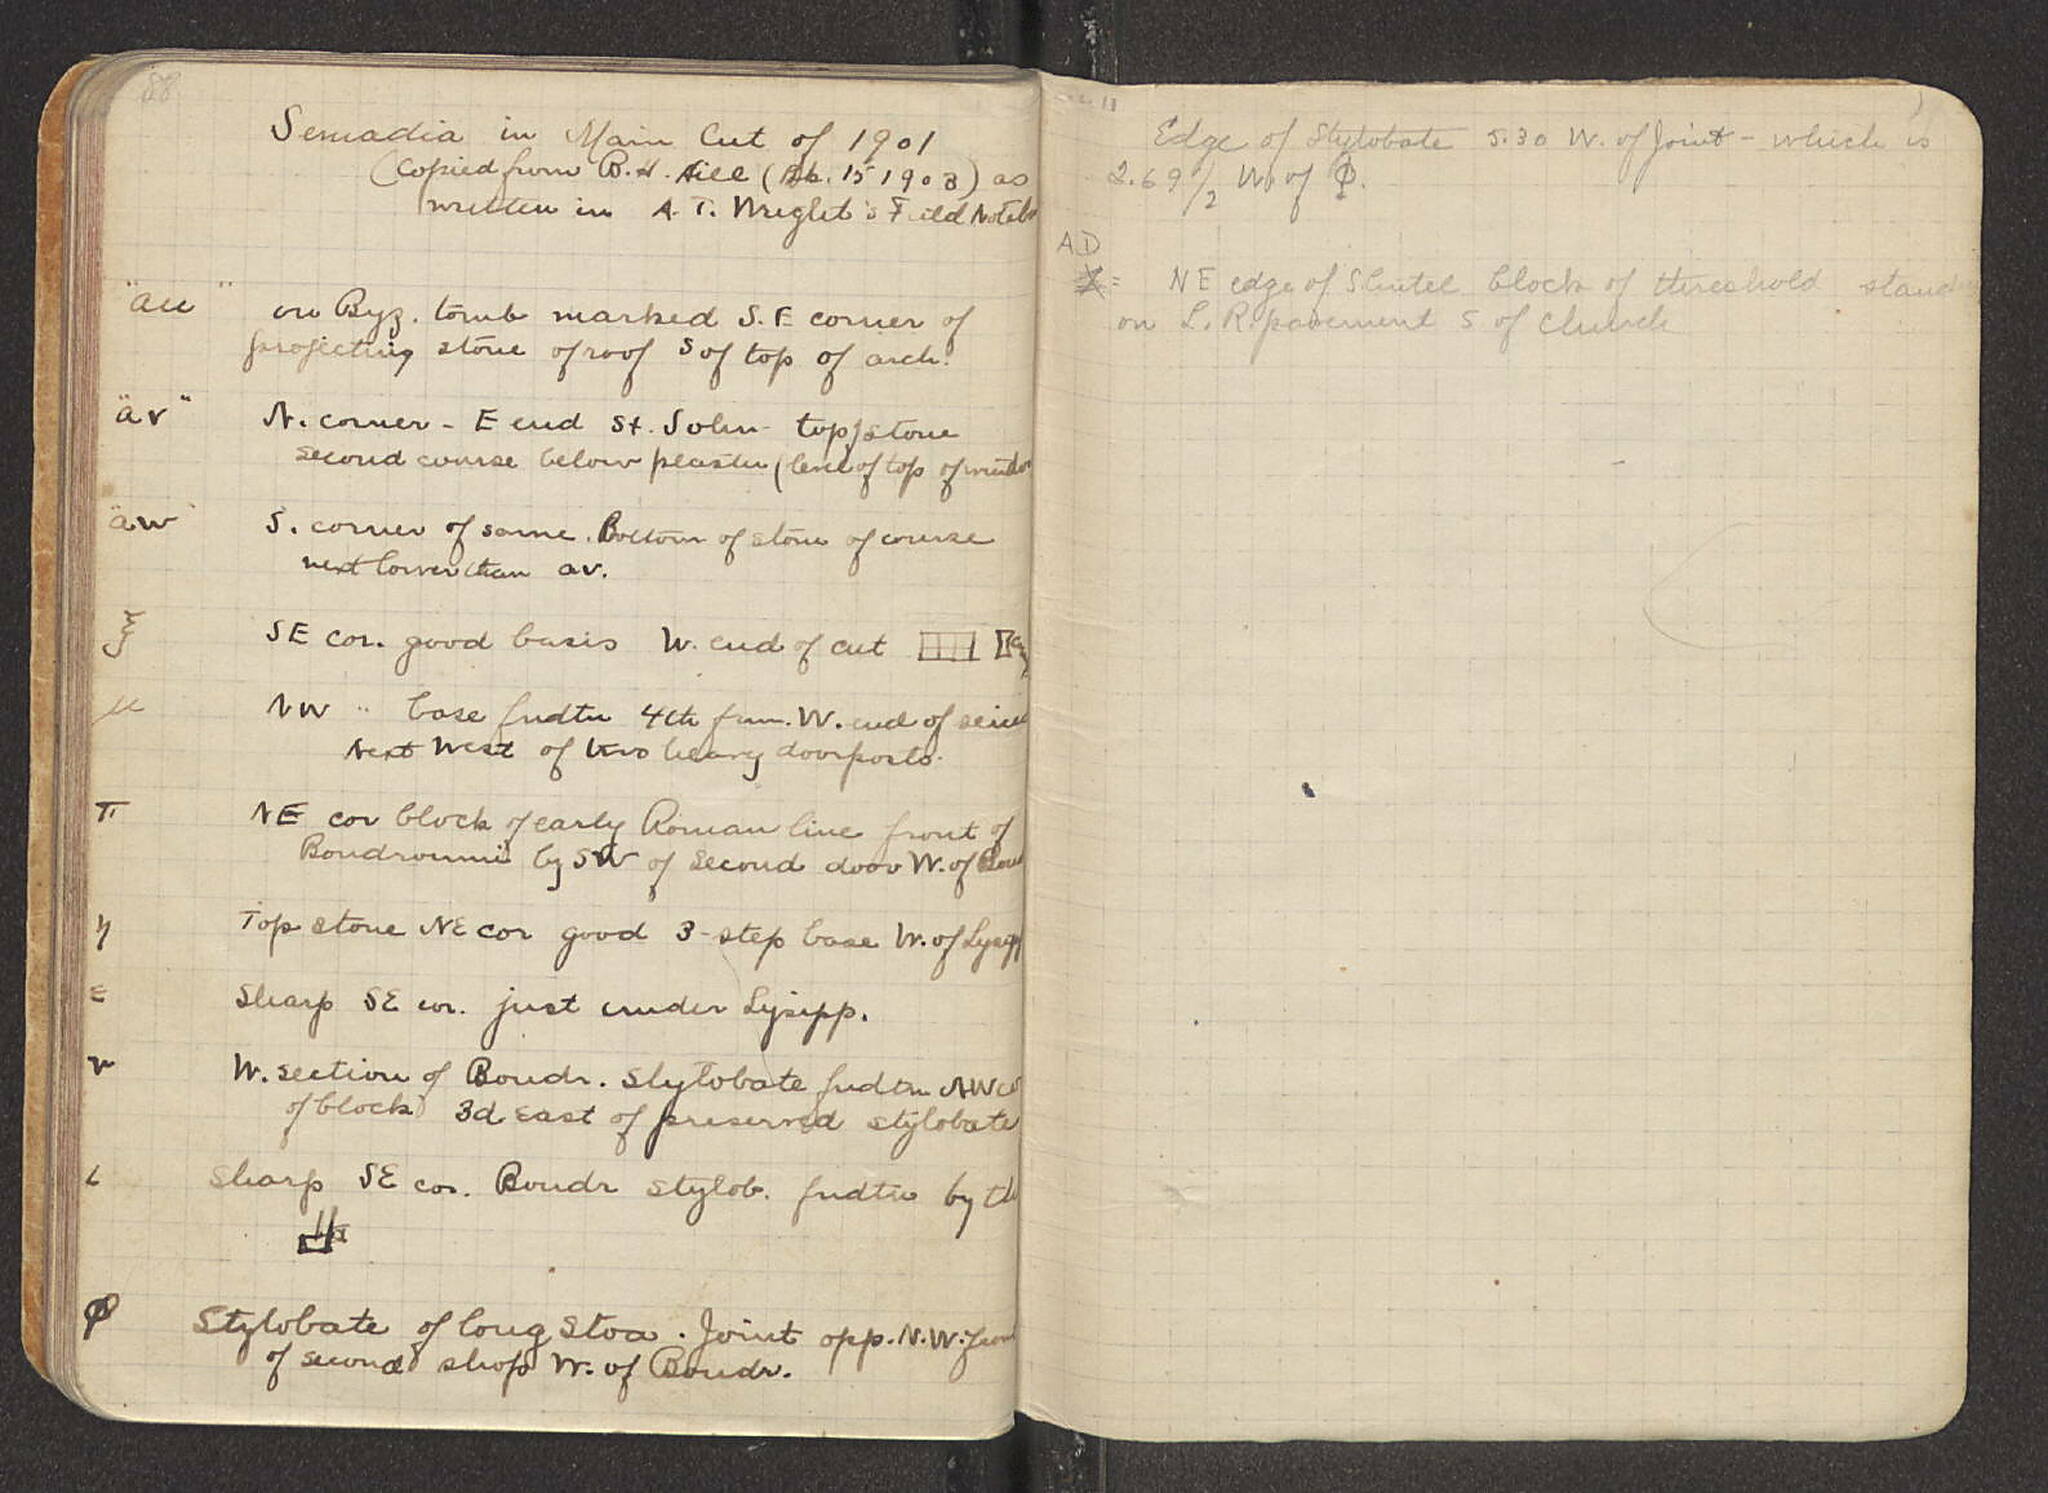 88
Semadia in Main Cut of 1901
(Copied from B.H. Hill (Bk. 15 1903) as
written in A.T. Wright's Field Noteb
"au" on Byz. tomb marked S.E corner of
projecting stone of roof S of top of arch.
"av" N. corner - E end St. John - top stone
second course below plaster (level of top of window
"aw" S. corner of same. Bottom of stone of course
next lower than av.
ξ SE cor. good basis W. end of cut
μ NW " base fndtn 4th from W. end of series
next West of two heavy doorposts.
π NE cor block of early Roman line front of
Boudroumi by SW of second door W. of Bou
η Top stone NE cor good 3-step base W. of Lysipp
Ε Sharp SE cor. just under Lysipp.
ν W. section of Boudr. Stylobate fndtn NW co
of block 3d East of preserved stylobate
ι Sharp SE cor. Boudr stylob. fndtn by th
φ Stylobate of long Stoa. Joint opp. N.W. from
of second shop W. of Boudr.
Edge of Stylobate 5.30 W. of Joint - which is
2.69 1/2 W. of Φ.
AD
= NE edge of lintel block of threshold stand
on L.R. pavement S of Church